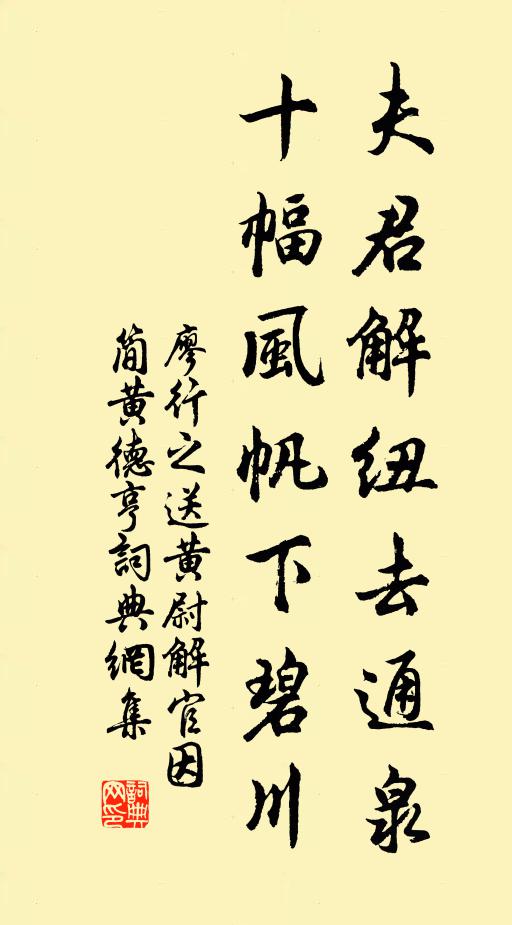 夫君解紐去通泉
十幅風帆下碧川
廖行之送黃尉解官因
簡黃德亨詞典網集
詞典网印